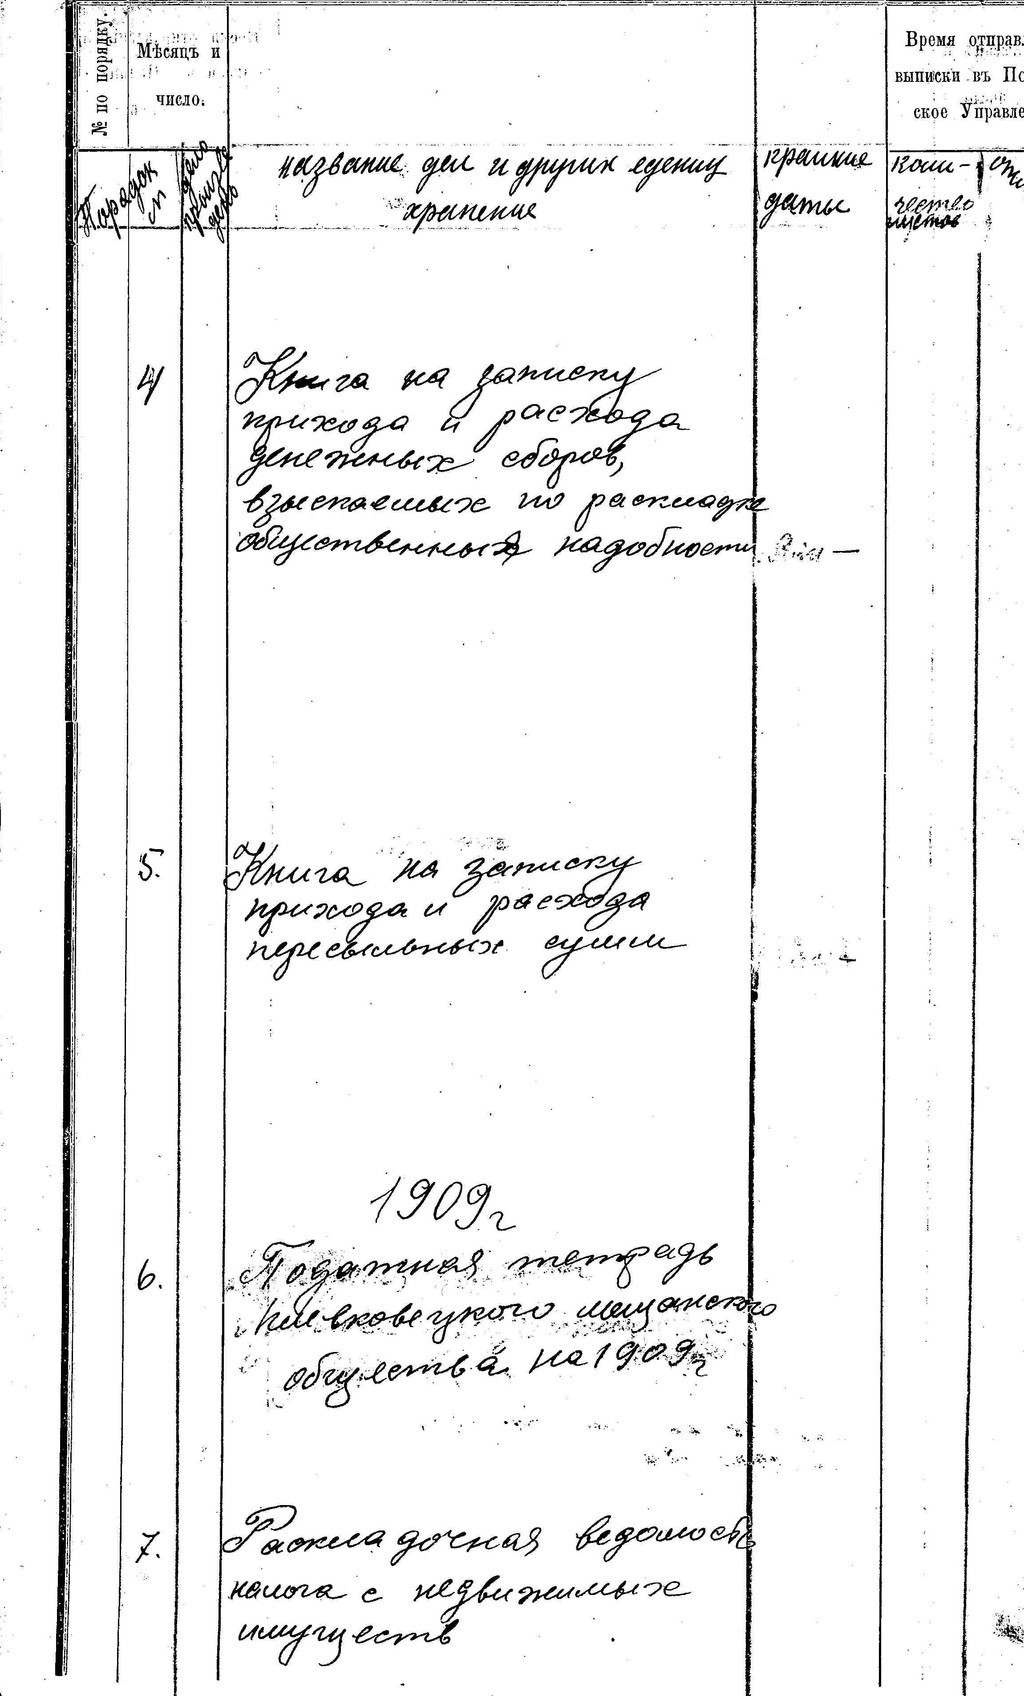 № по порядку.
Мѣсяцъ и
число.
Время отправ
выписки въ По
ское Управле
Порядок
№
дело
название дел и других едениц
хранение
крайние
даты
коли-
чество
листов
4
Книга на записку
прихода и расхода
денежных сборов,
взыскаемых по раскладке
общественных надобности
5.
Книга на записку
прихода и расхода
пересыльных сумм
1909г
6.
Податная тетрадь
мещанского
общества на 1909г
7.
Раскладочная ведомость
налога с недвижимых
имуществ